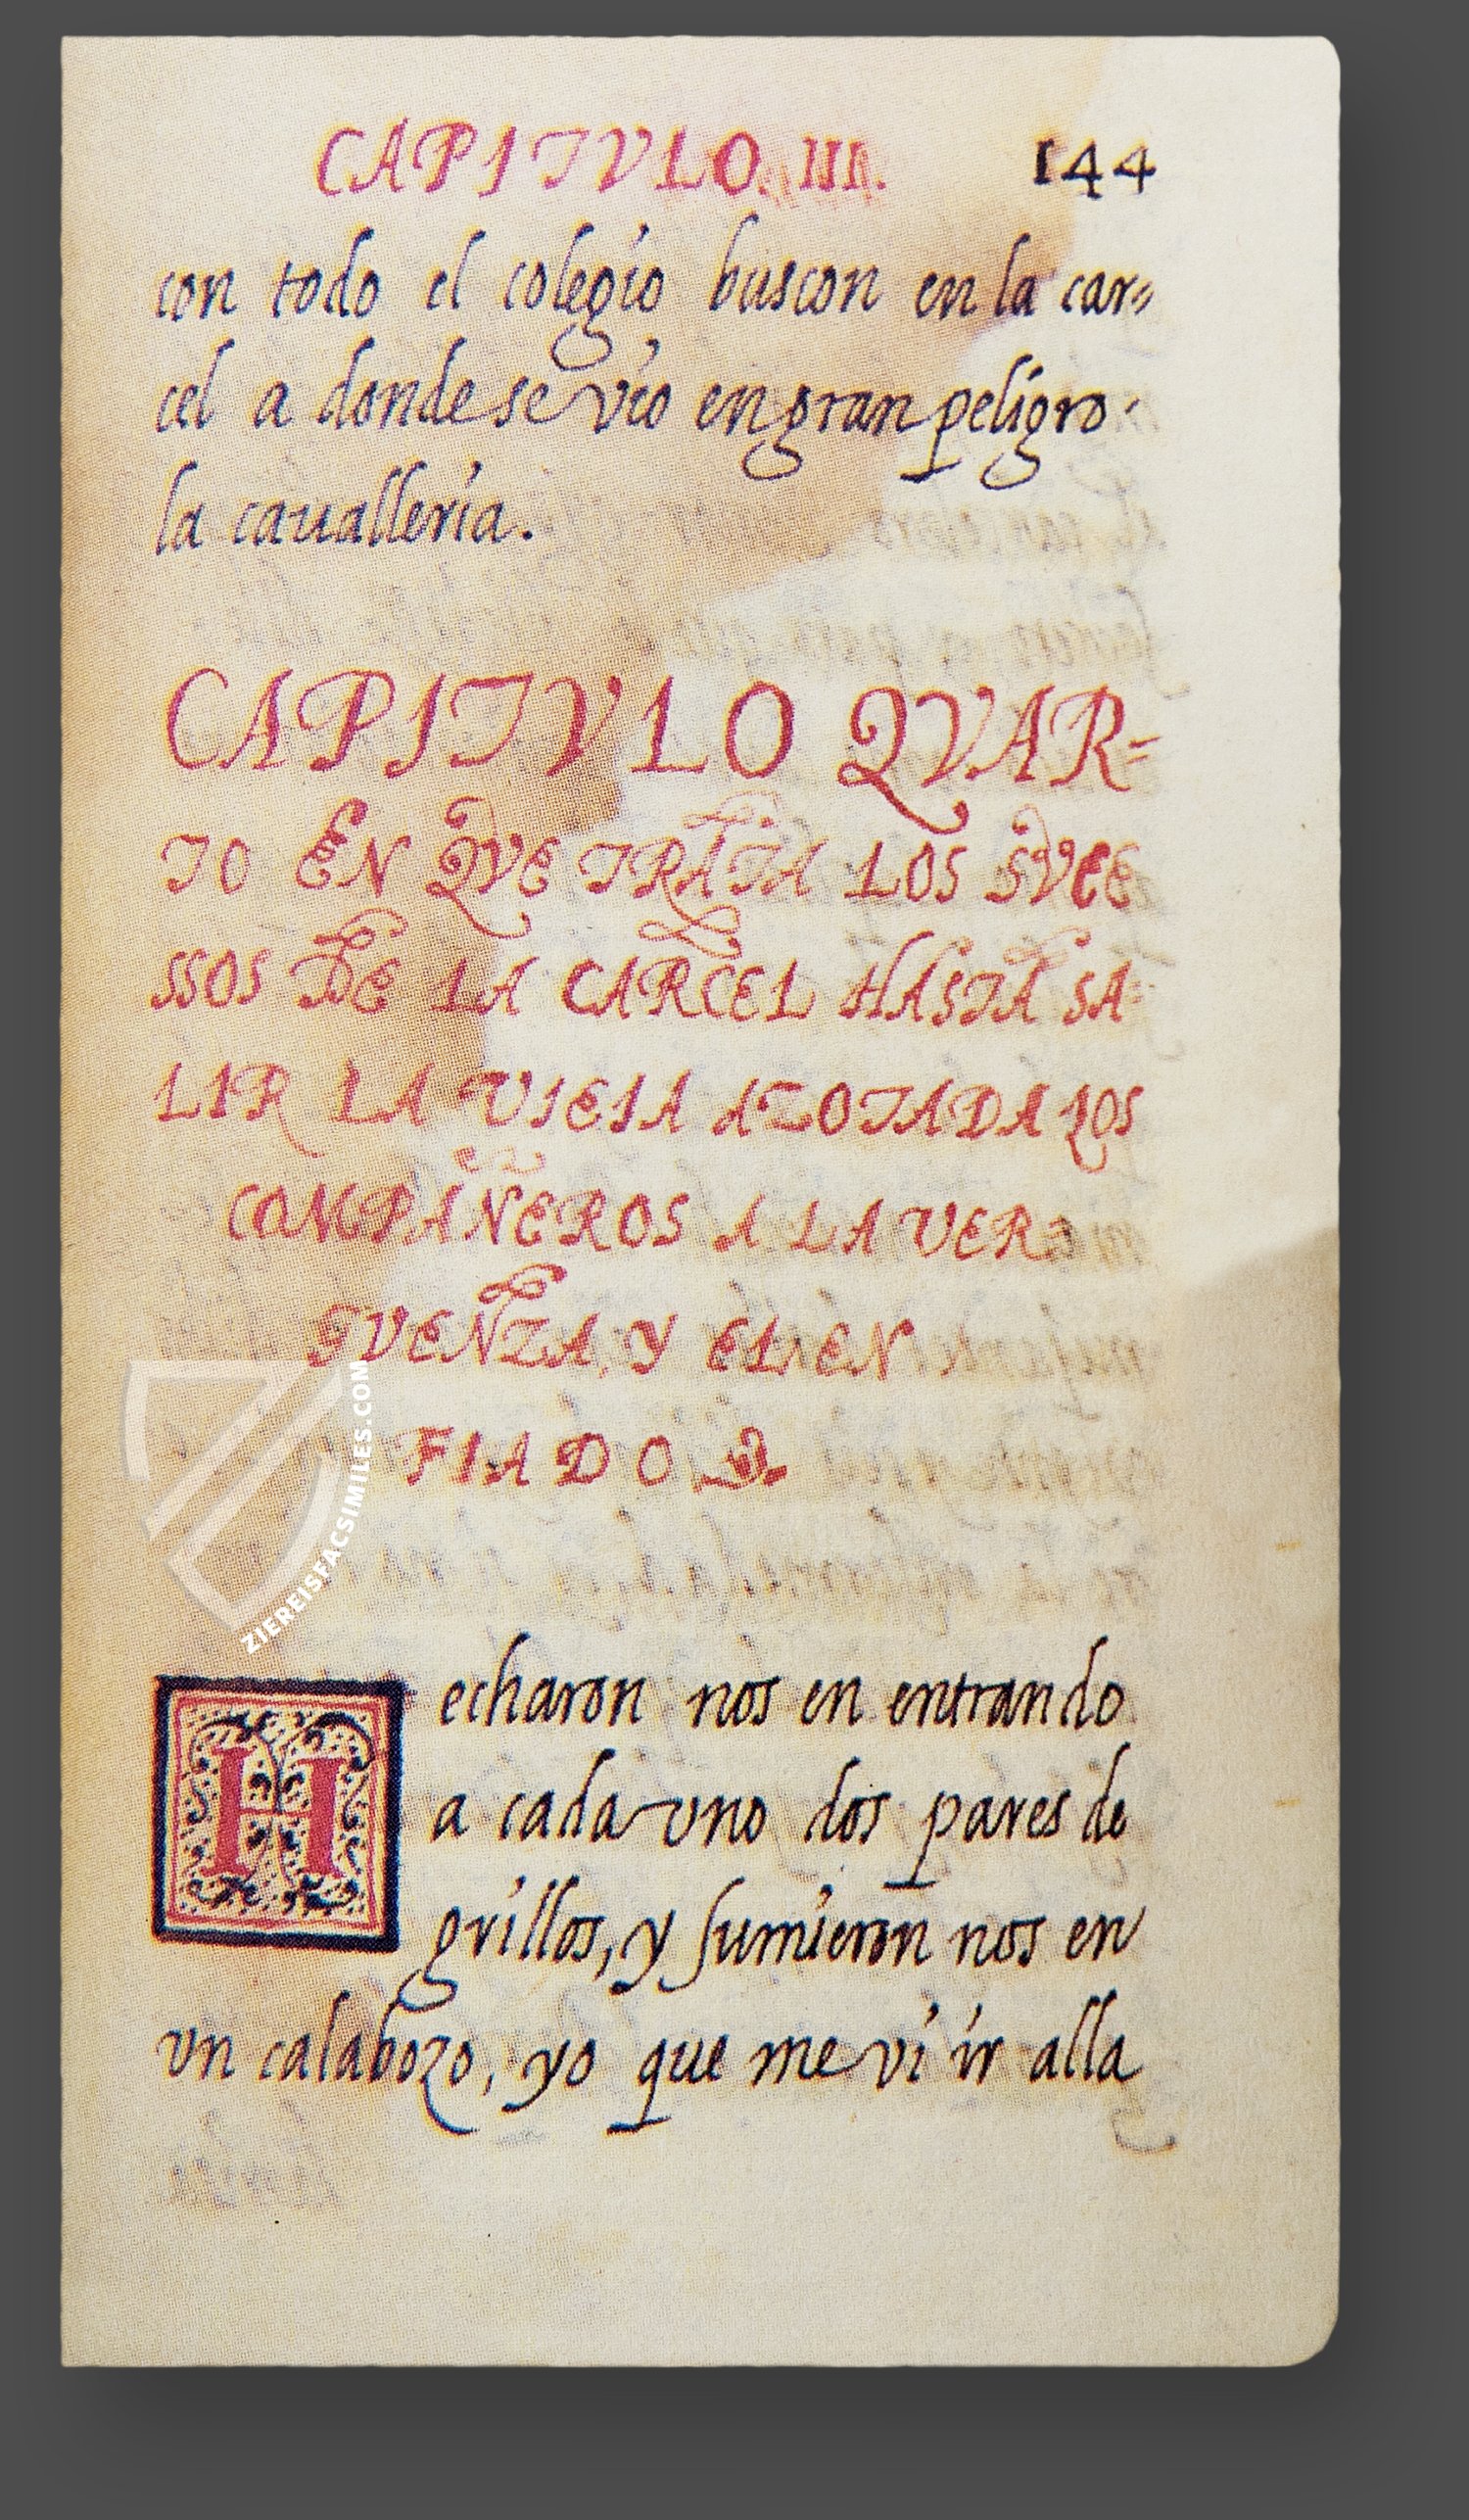 CAPITVLO. III. 144
con todo el colegio buscon en la car=
cel a donde se vio en gran peligro.
la cauallería.
CAPITVLO QVAR=
TO EN QVE TRATA LOS SVCE
SSOS DE LA CARCEL HASTA SA=
LIR LA VIEIA AZOTADA LOS
COMPAÑEROS A LA VER=
GVENZA, Y EL EN
FIADO
Hecharon nos en entrando
a cada vno dos pares de
grillos, y sumieron nos en
vn calabozo, yo que me vi ir alla
ZIEREISFACSIMILES.COM